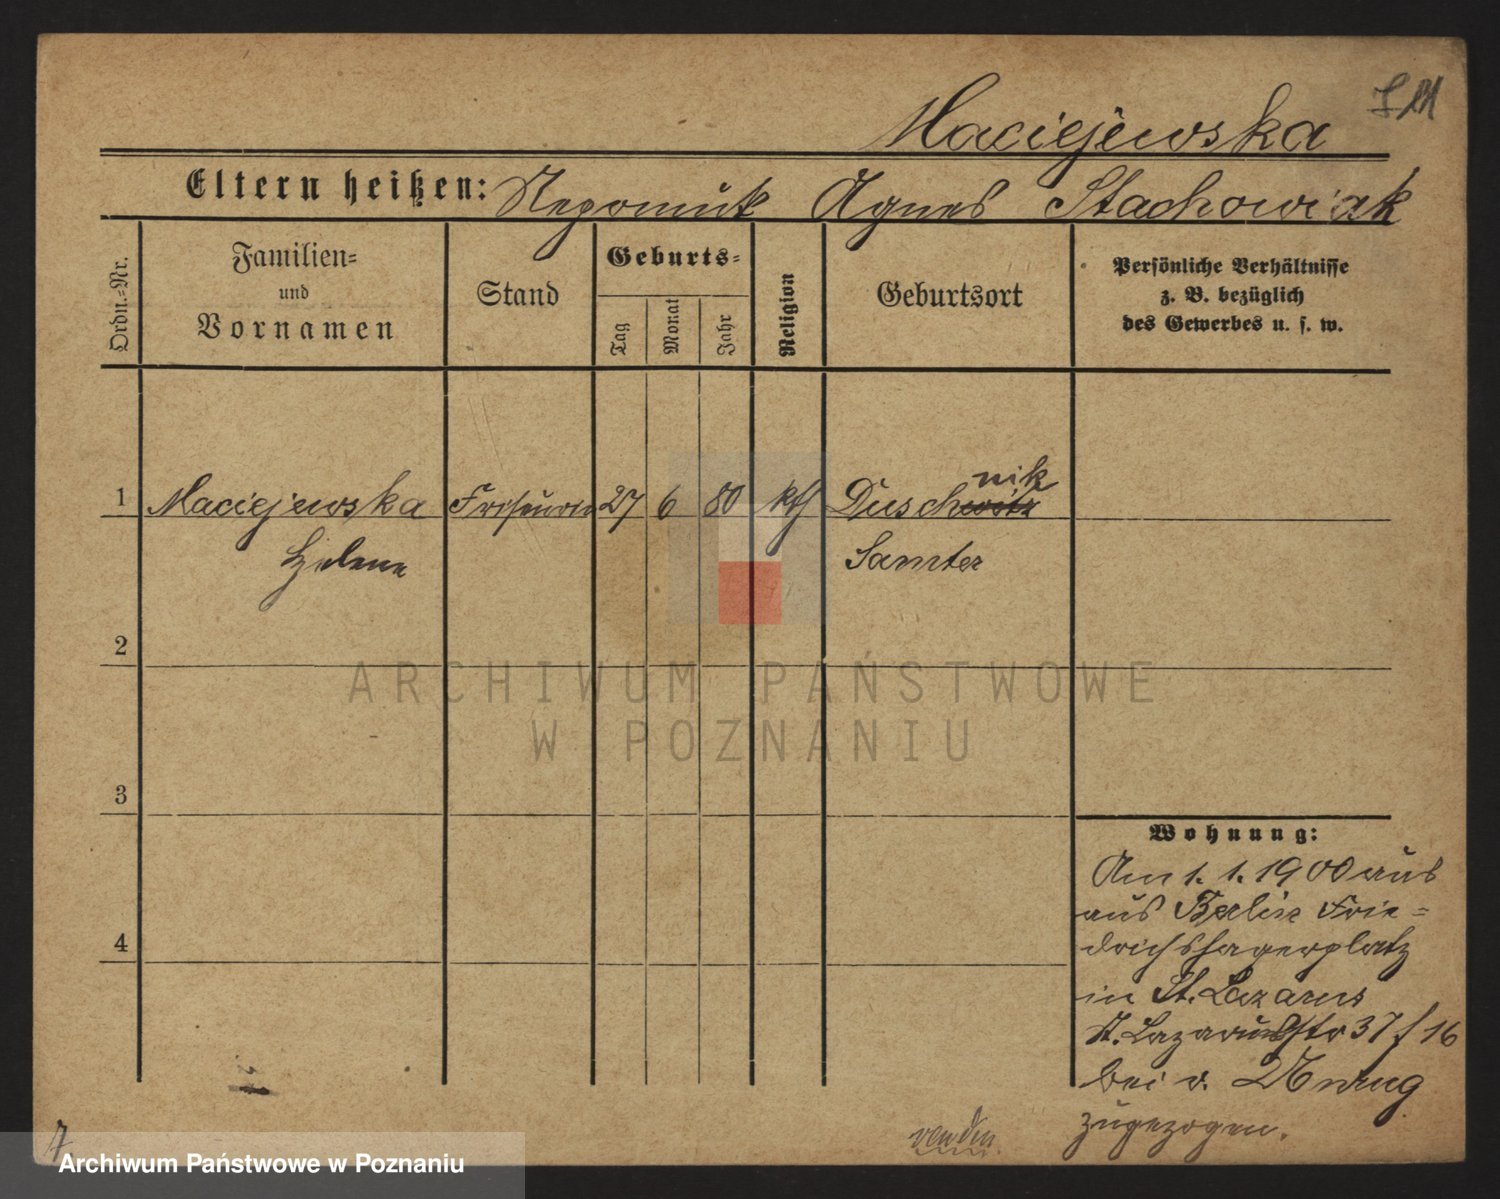 Maciejewska
Eltern heißen: Nepomuk Agnes Stachowiak
Ordn.-Nr.
Familien-
und
Vornamen
Stand
Geburts-
Tag
Monat
Jahr
Religion
Geburtsort
Persönliche Verhältnisse
z. B. bezüglich
des Gewerbes u. s. w.
nik
1 Maciejewska Friseurin 27 6 80 kth Duschwitz
Helene Samter
2
ARCHIWUM PAŃSTWOWE
W POZNANIU
3
Wohnung:
Am 1. 1. 1900 aus
aus Berlin Frie-
4
drichshagerplatz
in St. Lazarus
St. Lazarusstr 37 f 16
bei v.
zugezogen.
wenden
Archiwum Państwowe w Poznaniu